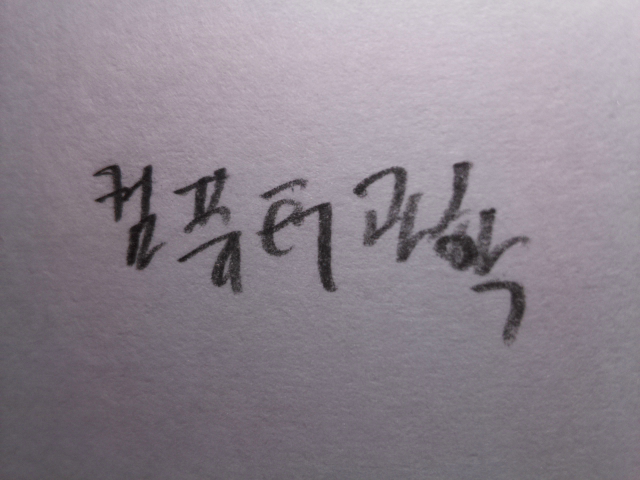 컴퓨터과학